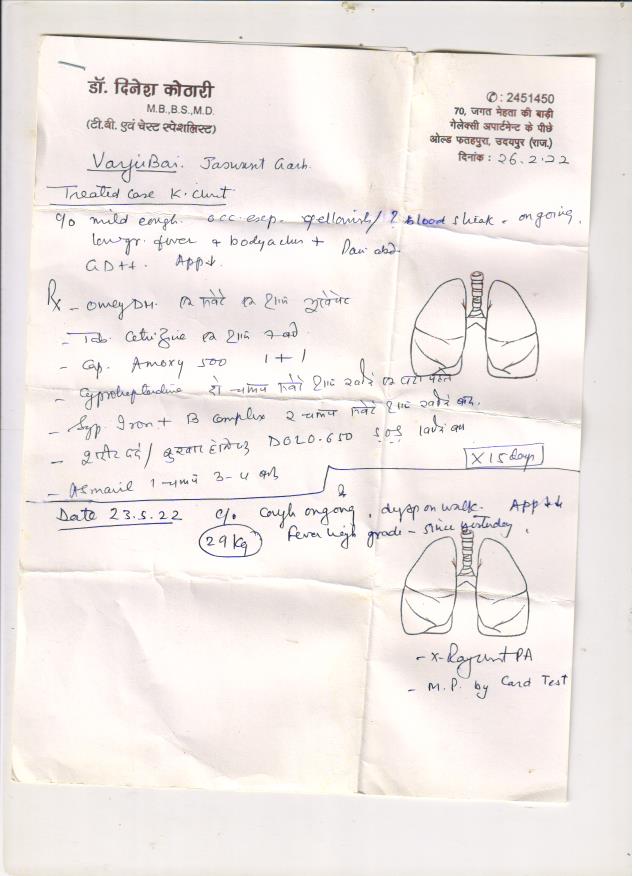 डॉ. दिनेश कोठारी
M.B.,B.S.,M.D.
(टी.बी. एवं चेस्ट स्पेशलिस्ट)
✆: 2451450
70, जगत मेहता की बाड़ी
गेलेक्सी अपार्टमेन्ट के पीछे
ओल्ड फतहपुरा, उदयपुर (राज.)
दिनांक: 26.2.22
VarjuBai. Jaswant Garh.
Treated case K. chest
c/o mild cough. occ. exp. yellowish/? blood streak. ongoing.
low gr. fever + bodyaches + Pain abd.
GD++. App↓
Rx - Omey DM.
- Tab. Cetrizine एक शाम
- Cap. Amoxy 500 1 + 1
- Cyproheptadine दो चम्मच
- Syp. Iron + B Complex 2 चम्मच
- शरीर दर्द/ बुखार DOLO.650 SOS
- 1 चम्मच 3-4
X 15 days
Date 23.5.22 c/o cough ongong. dysp on walk. App↓↓
29 Kg Fever high grade - since yesterday.
- X-Ray chest PA
- M.P. by Card Test